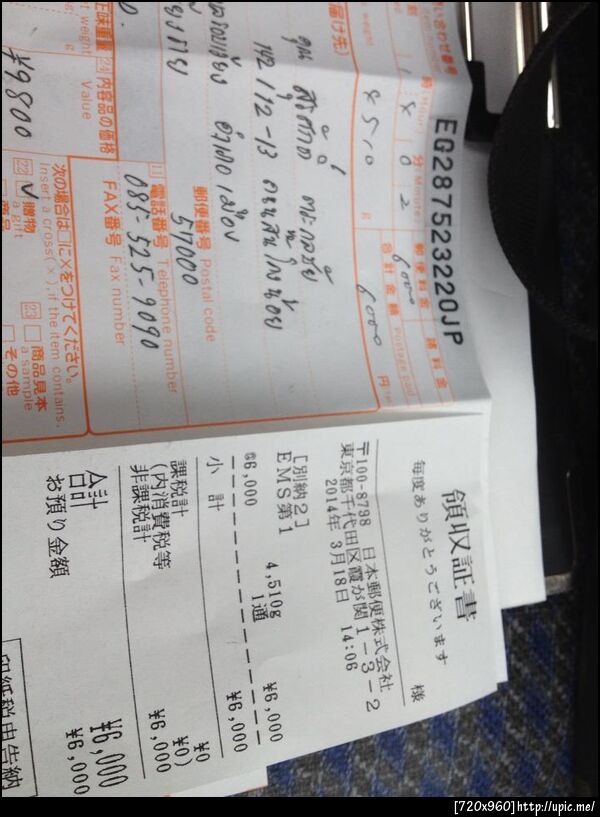 い合わせ番号
EG287523220JP
時(Hour) 分(Minute) 郵便料金 諸料金
1 x 0 2 6000
合計金額 Postage paid
4510 g 6000 円
届け先)
郵便番号 Postal code
57000
電話番号 Telephone number
085-525-9090
FAX番号 Fax number
正味重量
t weight
内容品の価格
Value
¥9800
次の場合は□に×をつけてください。
Insert a cross(×), if the item contains.
22 贈物
a gift
23 商品見本
a sample
その他
商品
領収証書
様
毎度ありがとうございます
〒100-8798 日本郵便株式会社
東京都千代田区霞が関1-3-2
2014年 3月18日 14:06
[別納2]
EMS第1
4,510g
@6,000 1通 ¥6,000
小計 ¥6,000
課税計 ¥0
(内消費税等 ¥0)
非課税計 ¥6,000
合計 ¥6,000
お預り金額 ¥6,000
印紙税申告納
[720x960]http://upic.me/